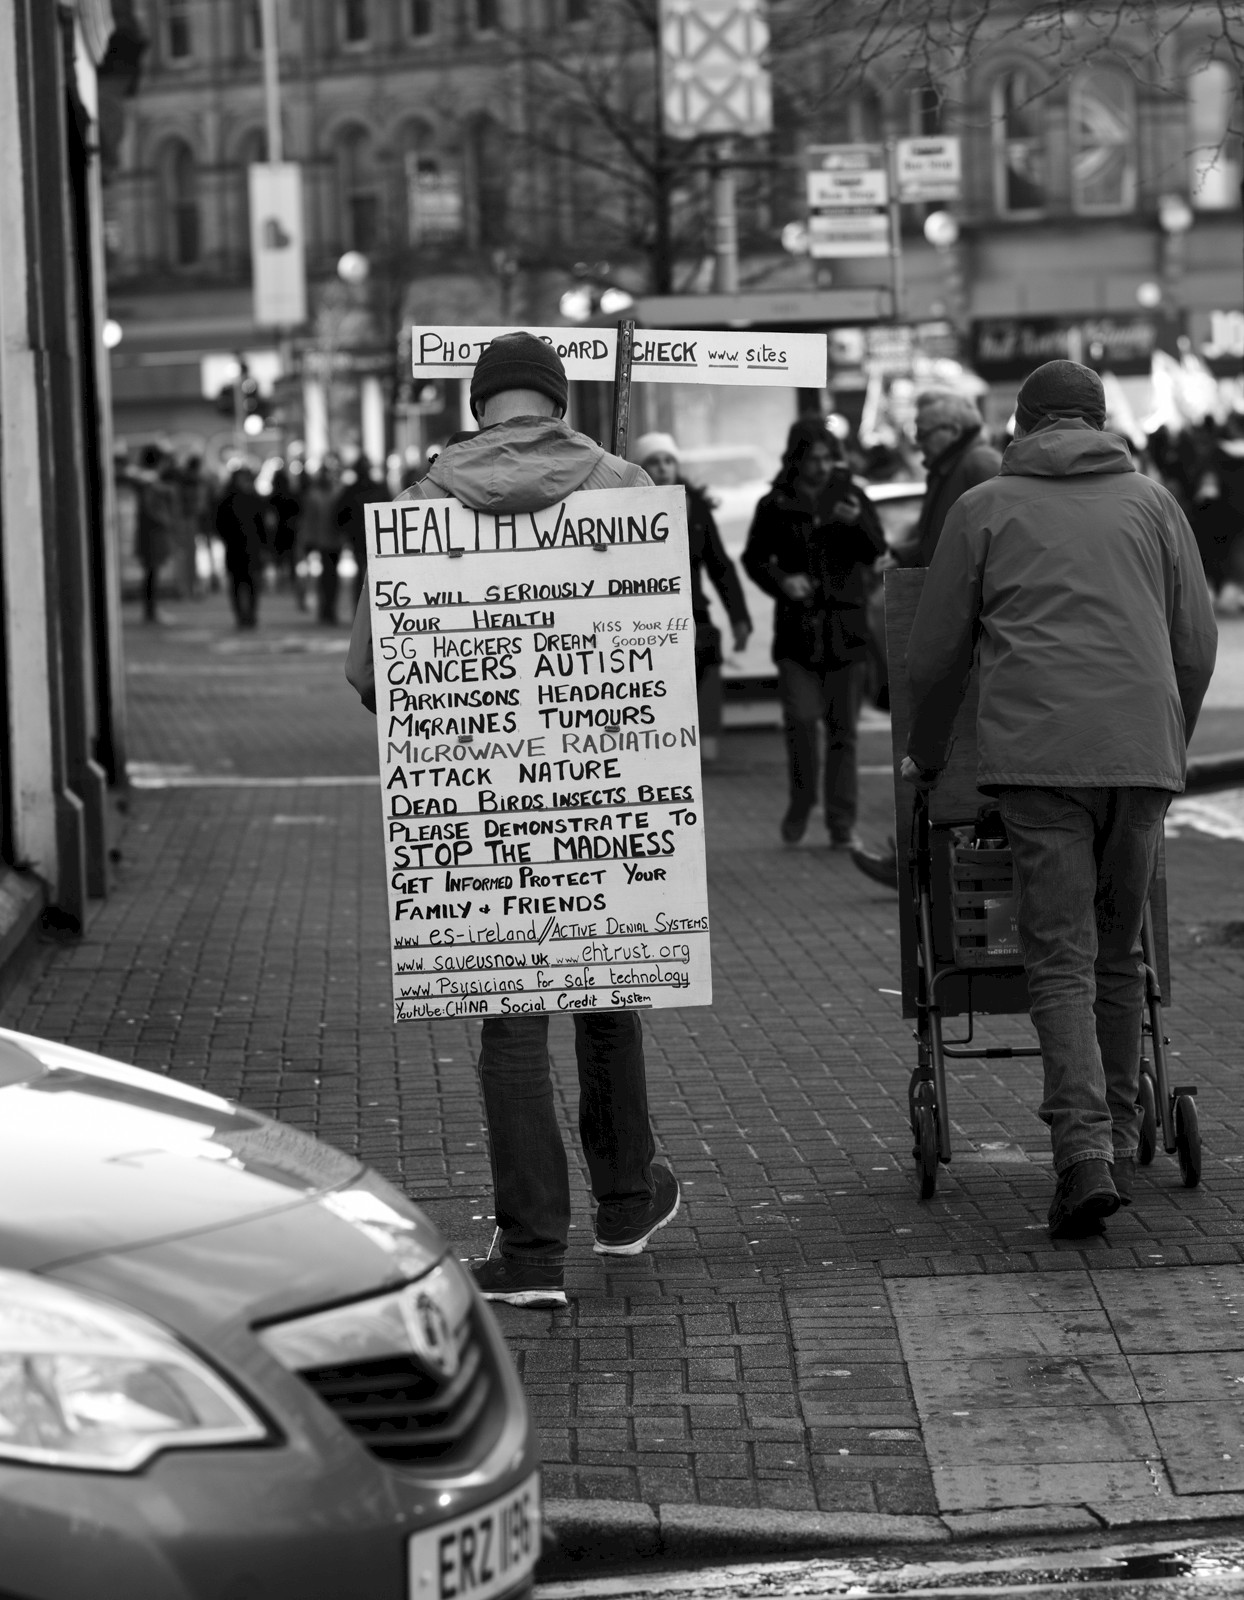 BOARD CHECK www sites
HEALTH WARNING
5G WILL SERIOUSLY DAMAGE
YOUR HEALTH
KISS YOUR £££
GOODBYE
5G HACKERS DREAM
CANCERS AUTISM
PARKINSONS HEADACHES
MIGRAINES TUMOURS
MICROWAVE RADIATION
ATTACK NATURE
DEAD BIRDS INSECTS BEES
PLEASE DEMONSTRATE TO
STOP THE MADNESS
GET INFORMED PROTECT YOUR
FAMILY + FRIENDS
www es-ireland//ACTIVE DENIAL SYSTEMS
www. saveusnow.uk www ehtrust.org
www. Psysicians for safe technology
Youtube: CHINA Social Credit System
ERZ 1196